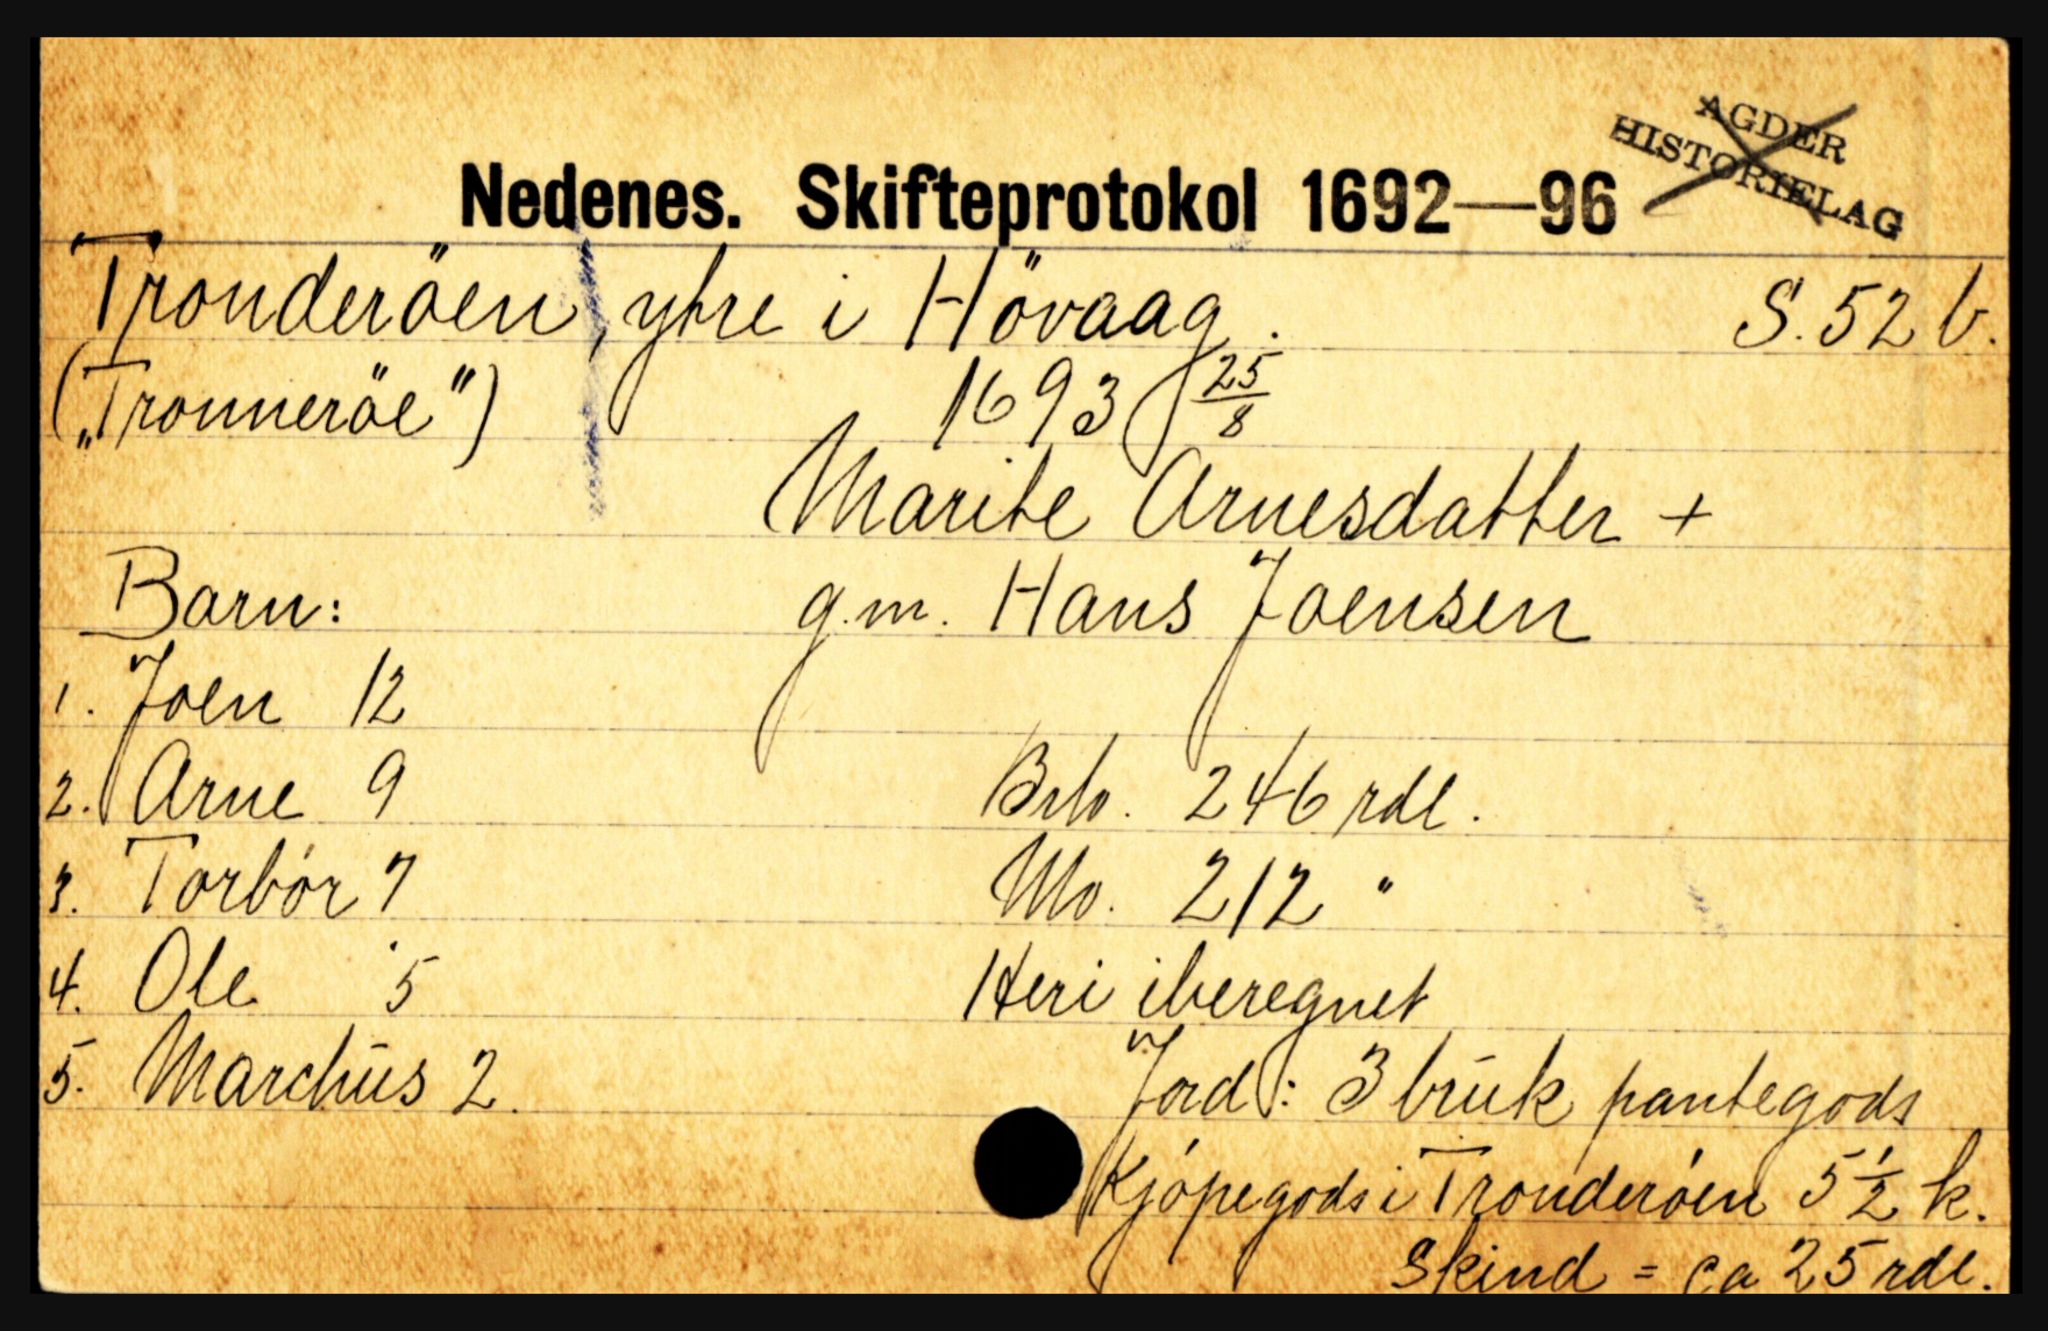 AGDER
HISTORIELAG
Nedenes. Skifteprotokol 1692—96
Tronderöen, ytre i Hövaag. S. 52 b.
(„Tronneröe") 1693 25/8
Marite Arnesdatter +
Barn: g.m. Hans Joensen
1. Joen 12
2. Arne 9 Brb. 246 rdl.
3. Torbör 7 Nb. 212 "
4. Ole 5 Heri iberegnet
5. Marchus 2. Jord: 3 bruk pantegods
Kjöpegods i Tronderöen 5 1/2 k.
skind = ca 25 rdl.